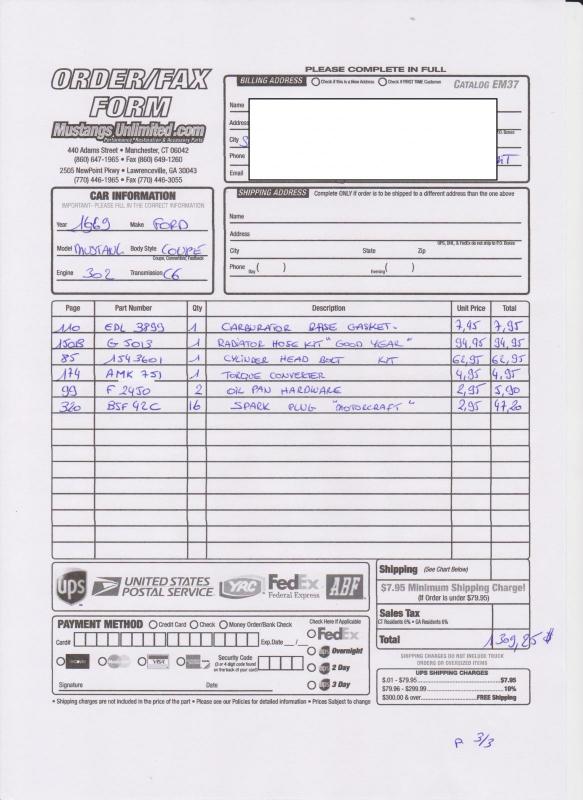 ORDER/FAX
FORM
Mustangs Unlimited.com
Performance, Restoration & Accessory Parts
440 Adams Street • Manchester, CT 06042
(860) 647-1965 • Fax (860) 649-1260
2505 NewPoint Pkwy • Lawrenceville, GA 30043
(770) 446-1965 • Fax (770) 446-3055
PLEASE COMPLETE IN FULL
BILLING ADDRESS Check if this is a New Address Check if FIRST TIME Customer CATALOG EM37
Name
Address
P.O. Boxes
City
Phone
Email
CAR INFORMATION
IMPORTANT- PLEASE FILL IN THE CORRECT INFORMATION
Year 1969 Make FORD
Model MUSTANG Body Style COUPÉ
Coupe, Convertible, Fastback
Engine 302 Transmission C6
SHIPPING ADDRESS Complete ONLY if order is to be shipped to a different address than the one above
Name
Address
UPS, DHL, & FedEx do not ship to P.O. Boxes
City State Zip
Phone Day ( ) Evening ( )
Page Part Number Qty Description Unit Price Total
110 EDL 3899 1 CARBURATOR BASE GASKET. 7,95 7,95
150B G 5013 1 RADIATOR HOSE KIT "GOOD YEAR" 94,95 94,95
85 154 3601 1 CYLINDER HEAD BOLT KIT 62,95 62,95
174 AMK 751 1 TORQUE CONVERTER 4,95 4,95
99 F 2450 2 OIL PAN HARDWARE 2,95 5,90
320 BSF 42C 16 SPARK PLUG "MOTORCRAFT" 2,95 47,20
ups UNITED STATES POSTAL SERVICE YRC FedEx Federal Express ABF
Shipping (See Chart Below)
$7.95 Minimum Shipping Charge!
(If Order is under $79.95)
Sales Tax
CT Residents 6% • GA Residents 6%
Total 1309,85 $
PAYMENT METHOD Credit Card Check Money Order/Bank Check
Card# Exp.Date __/__
Security Code
(3 or 4 digit code found on the back of your card)
VISA
Signature Date
Check Here If Applicable
FedEx
Overnight
2 Day
3 Day
SHIPPING CHARGES DO NOT INCLUDE TRUCK
ORDERS OR OVERSIZED ITEMS
UPS SHIPPING CHARGES
$.01 - $79.95 $7.95
$79.96 - $299.99 10%
$300.00 & over FREE Shipping
* Shipping charges are not included in the price of the part • Please see our Policies for detailed information • Prices Subject to Change
P 3/3